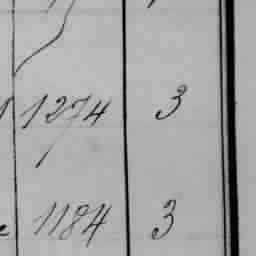 1274 3
1184 3